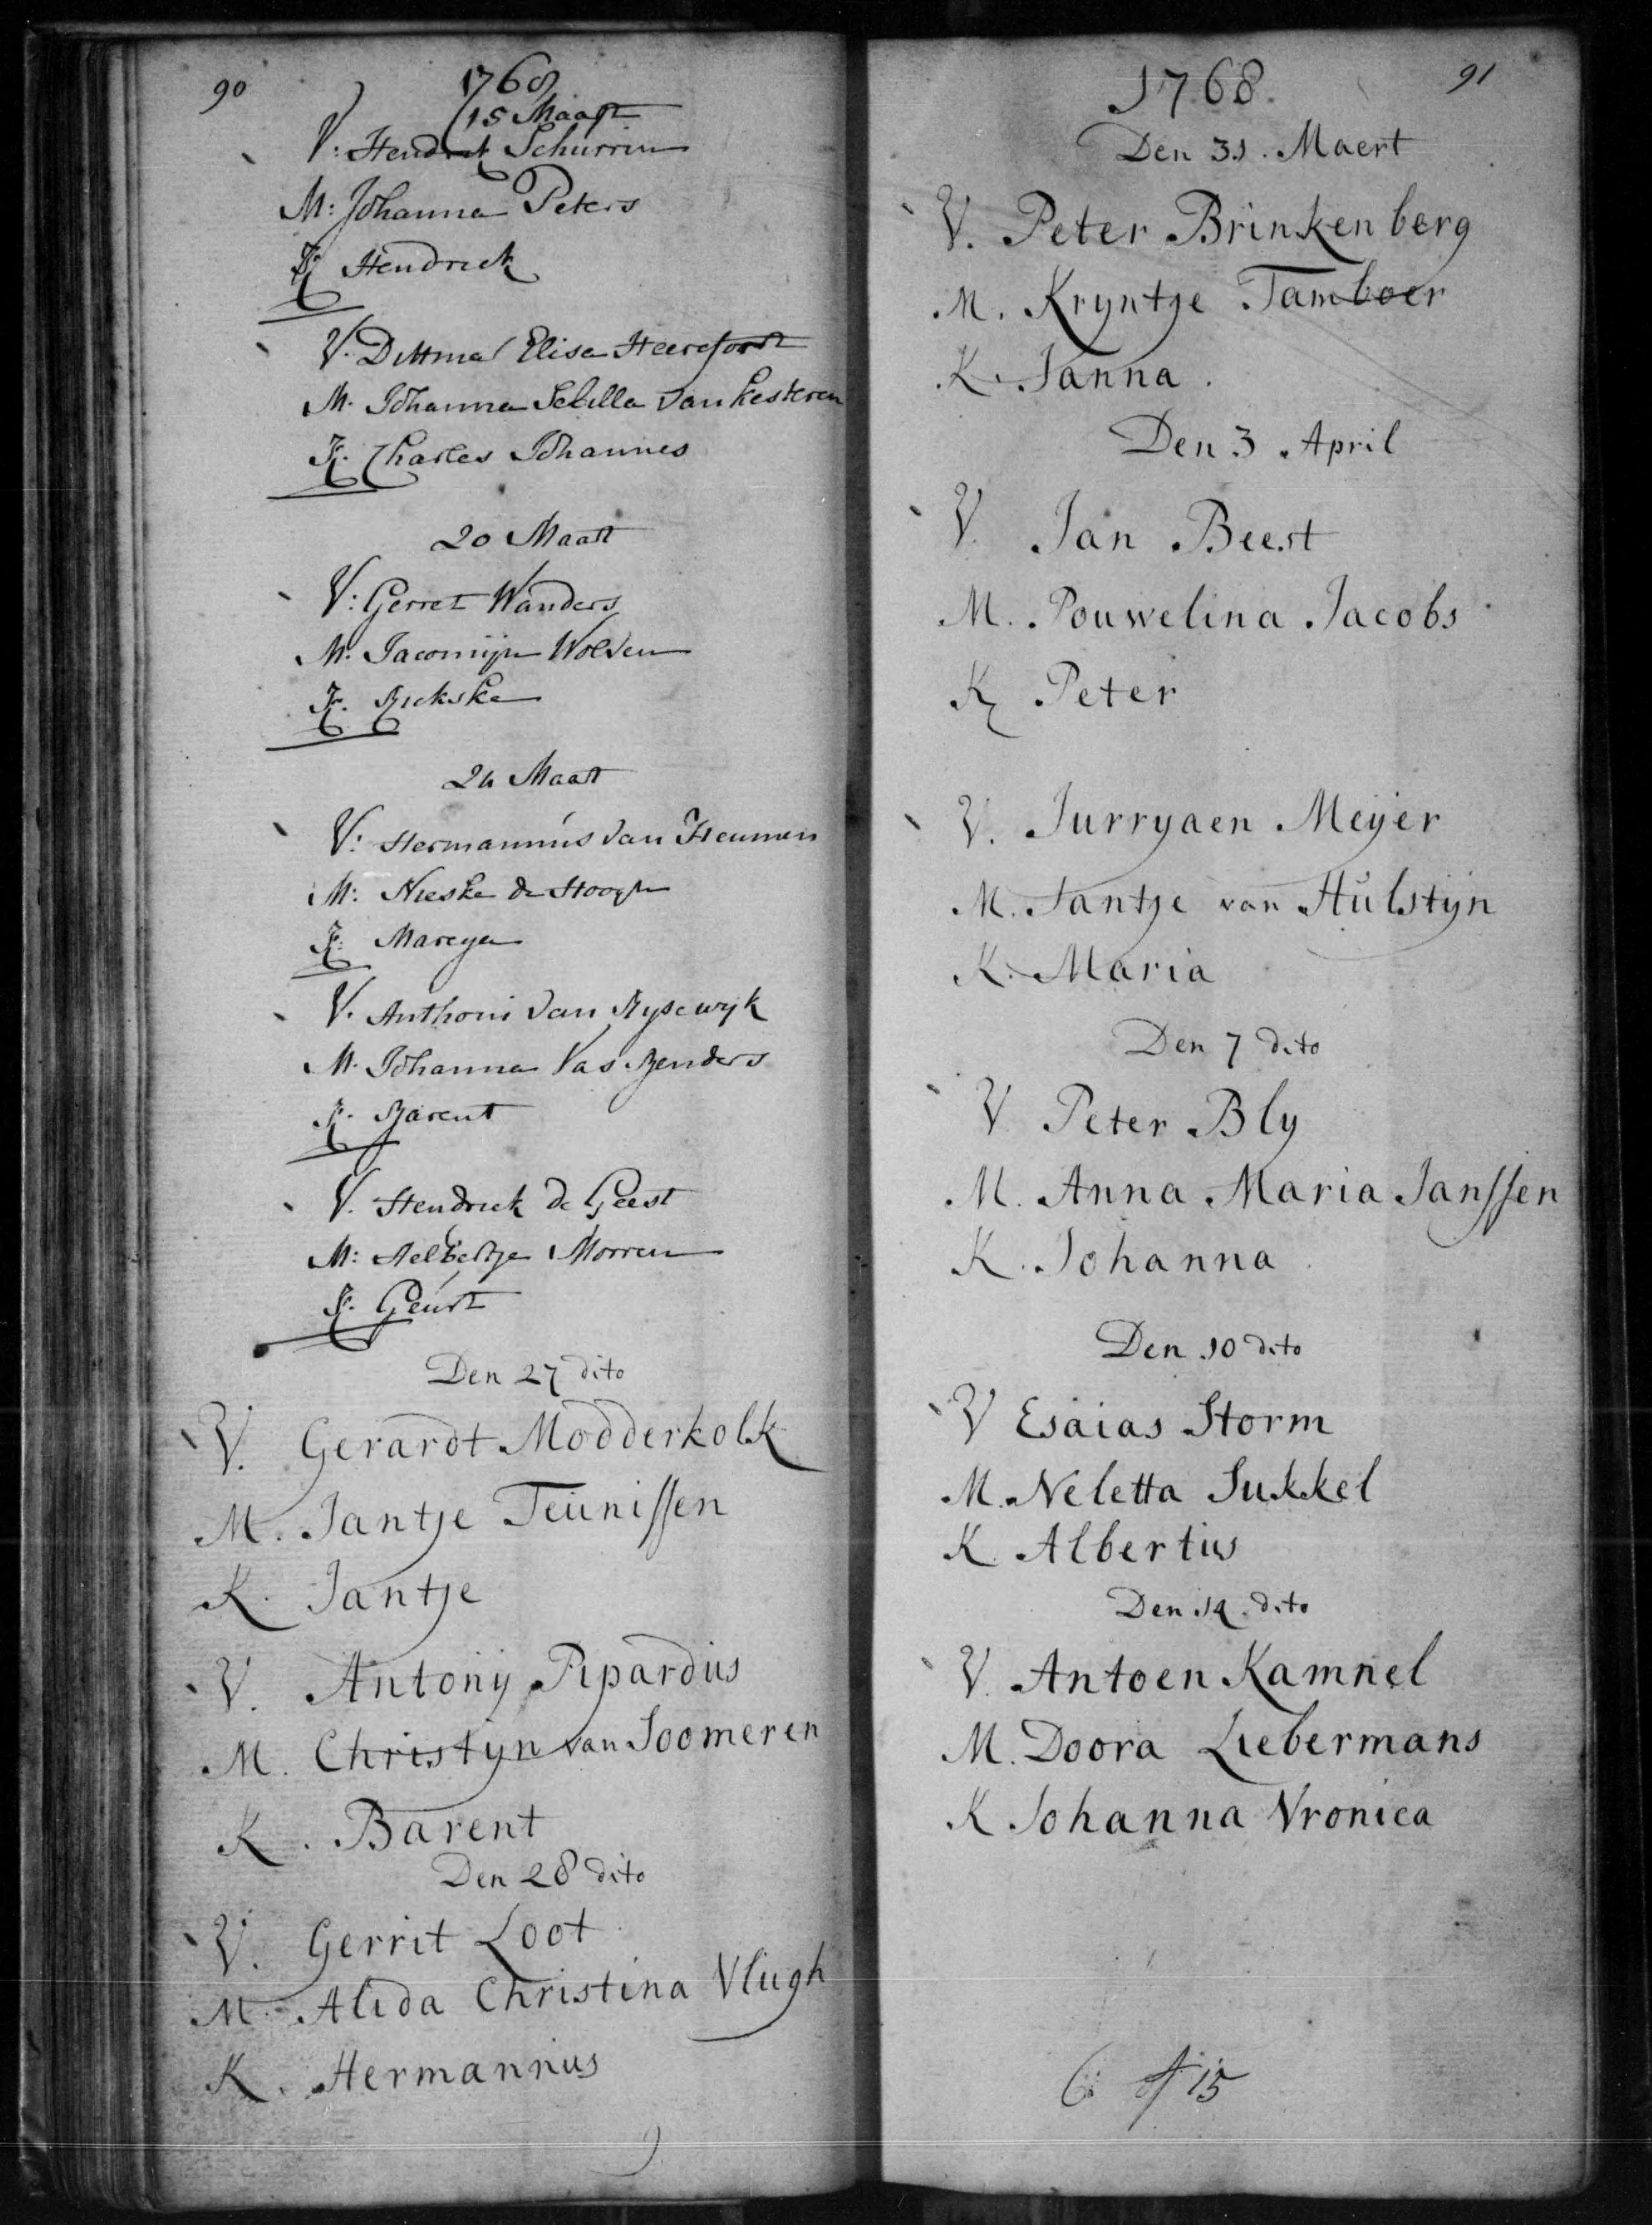 90
1768
15 Maart
V: Hendrik Schurrin
M: Johanna Peters
K Hendrick
V. Dittmar Elisa Heerefordt
M. Johanna Sebilla van Kesteren
K. Charles Johannes
20 Maart
V: Gerret Wanders
M. Jacomijn Wolven
K. Rickske
24 Maart
V: Hermannus van Heumen
M: Nieske de Hoogh
K: Mareya
V. Anthoni van Rysewyk
M. Johanna Vas Benders
K. Barent
V. Hendrick de Geest
M: Aelbertje Morren
K. Geurt
Den 27 dito
V. Gerardt Modderkolk
M. Jantje Teunissen
K. Jantje
V. Antony Ripardus
M. Christyn van Soomeren
K. Barent
Den 28 dito
V. Gerrit Loot
M. Alida Christina Vlugh
K. Hermannus
1768.
91
Den 31. Maert
V. Peter Brinkenberg
M. Kryntje Tamboer
K. Janna.
Den 3 April
V. Jan Beest
M. Pouwelina Jacobs
K Peter
V. Jurryaen Meyer
M. Jantje van Hulstyn
K. Maria
Den 7 dito
V Peter Bly
M. Anna Maria Janssen
K. Johanna
Den 10 dito
V Esaias Storm
M. Neletta Sukkel
K Albertus
Den 14 dito
V. Antoen Kamnel
M. Doora Liebermans
K Johanna Vronica